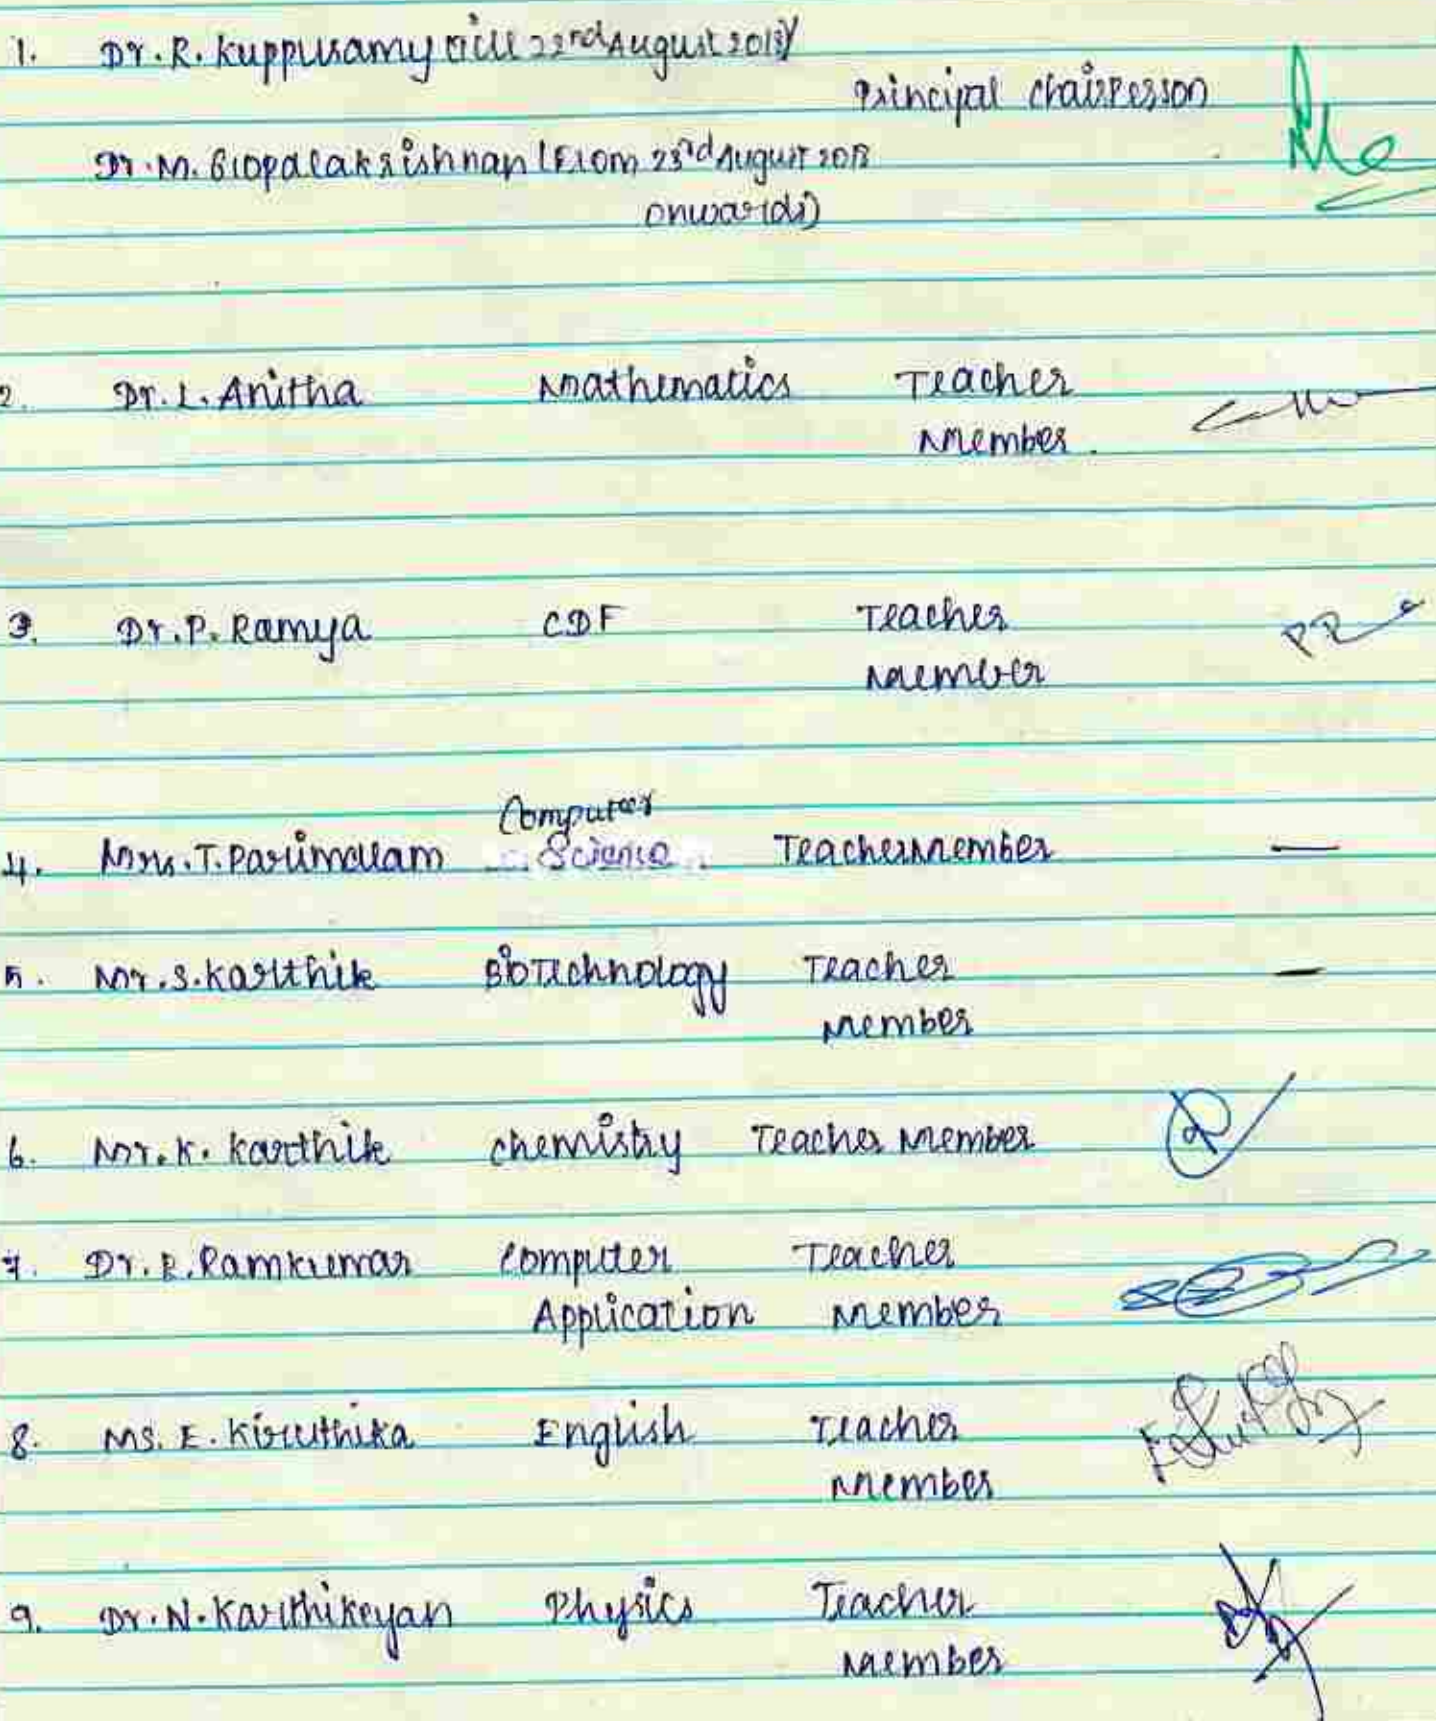 1. Dr. R. Kuppusamy (till 22nd August 2018)
Principal Chairperson
Dr. M. Gopalakrishnan (From 23rd August 2018
onwards)
2. Dr. L. Anitha Mathematics Teacher
Member.
3. Dr. P. Ramya CDF Teacher
Member
Computer
4. Mrs. T. Parimalam Science Teacher Member —
5. Mr. S. Karthik Biotechnology Teacher —
Member
6. Mr. K. Karthik Chemistry Teacher Member
7. Dr. R. Ramkumar Computer Teacher
Application Member
8. Ms. E. Kiruthika English Teacher
Member
9. Dr. N. Karthikeyan Physics Teacher
Member